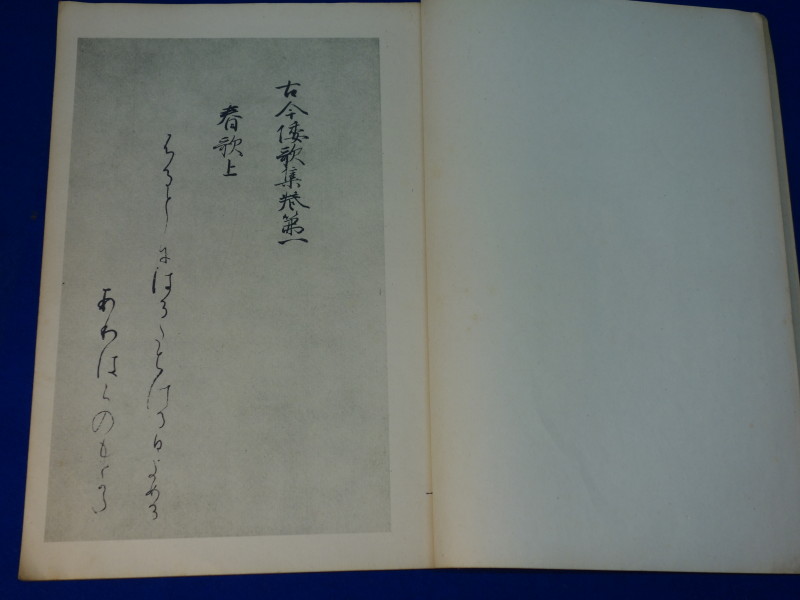 古今倭歌集巻第一
春歌上
ふるとしにはるたちける日よめる
ありはらのもとかた